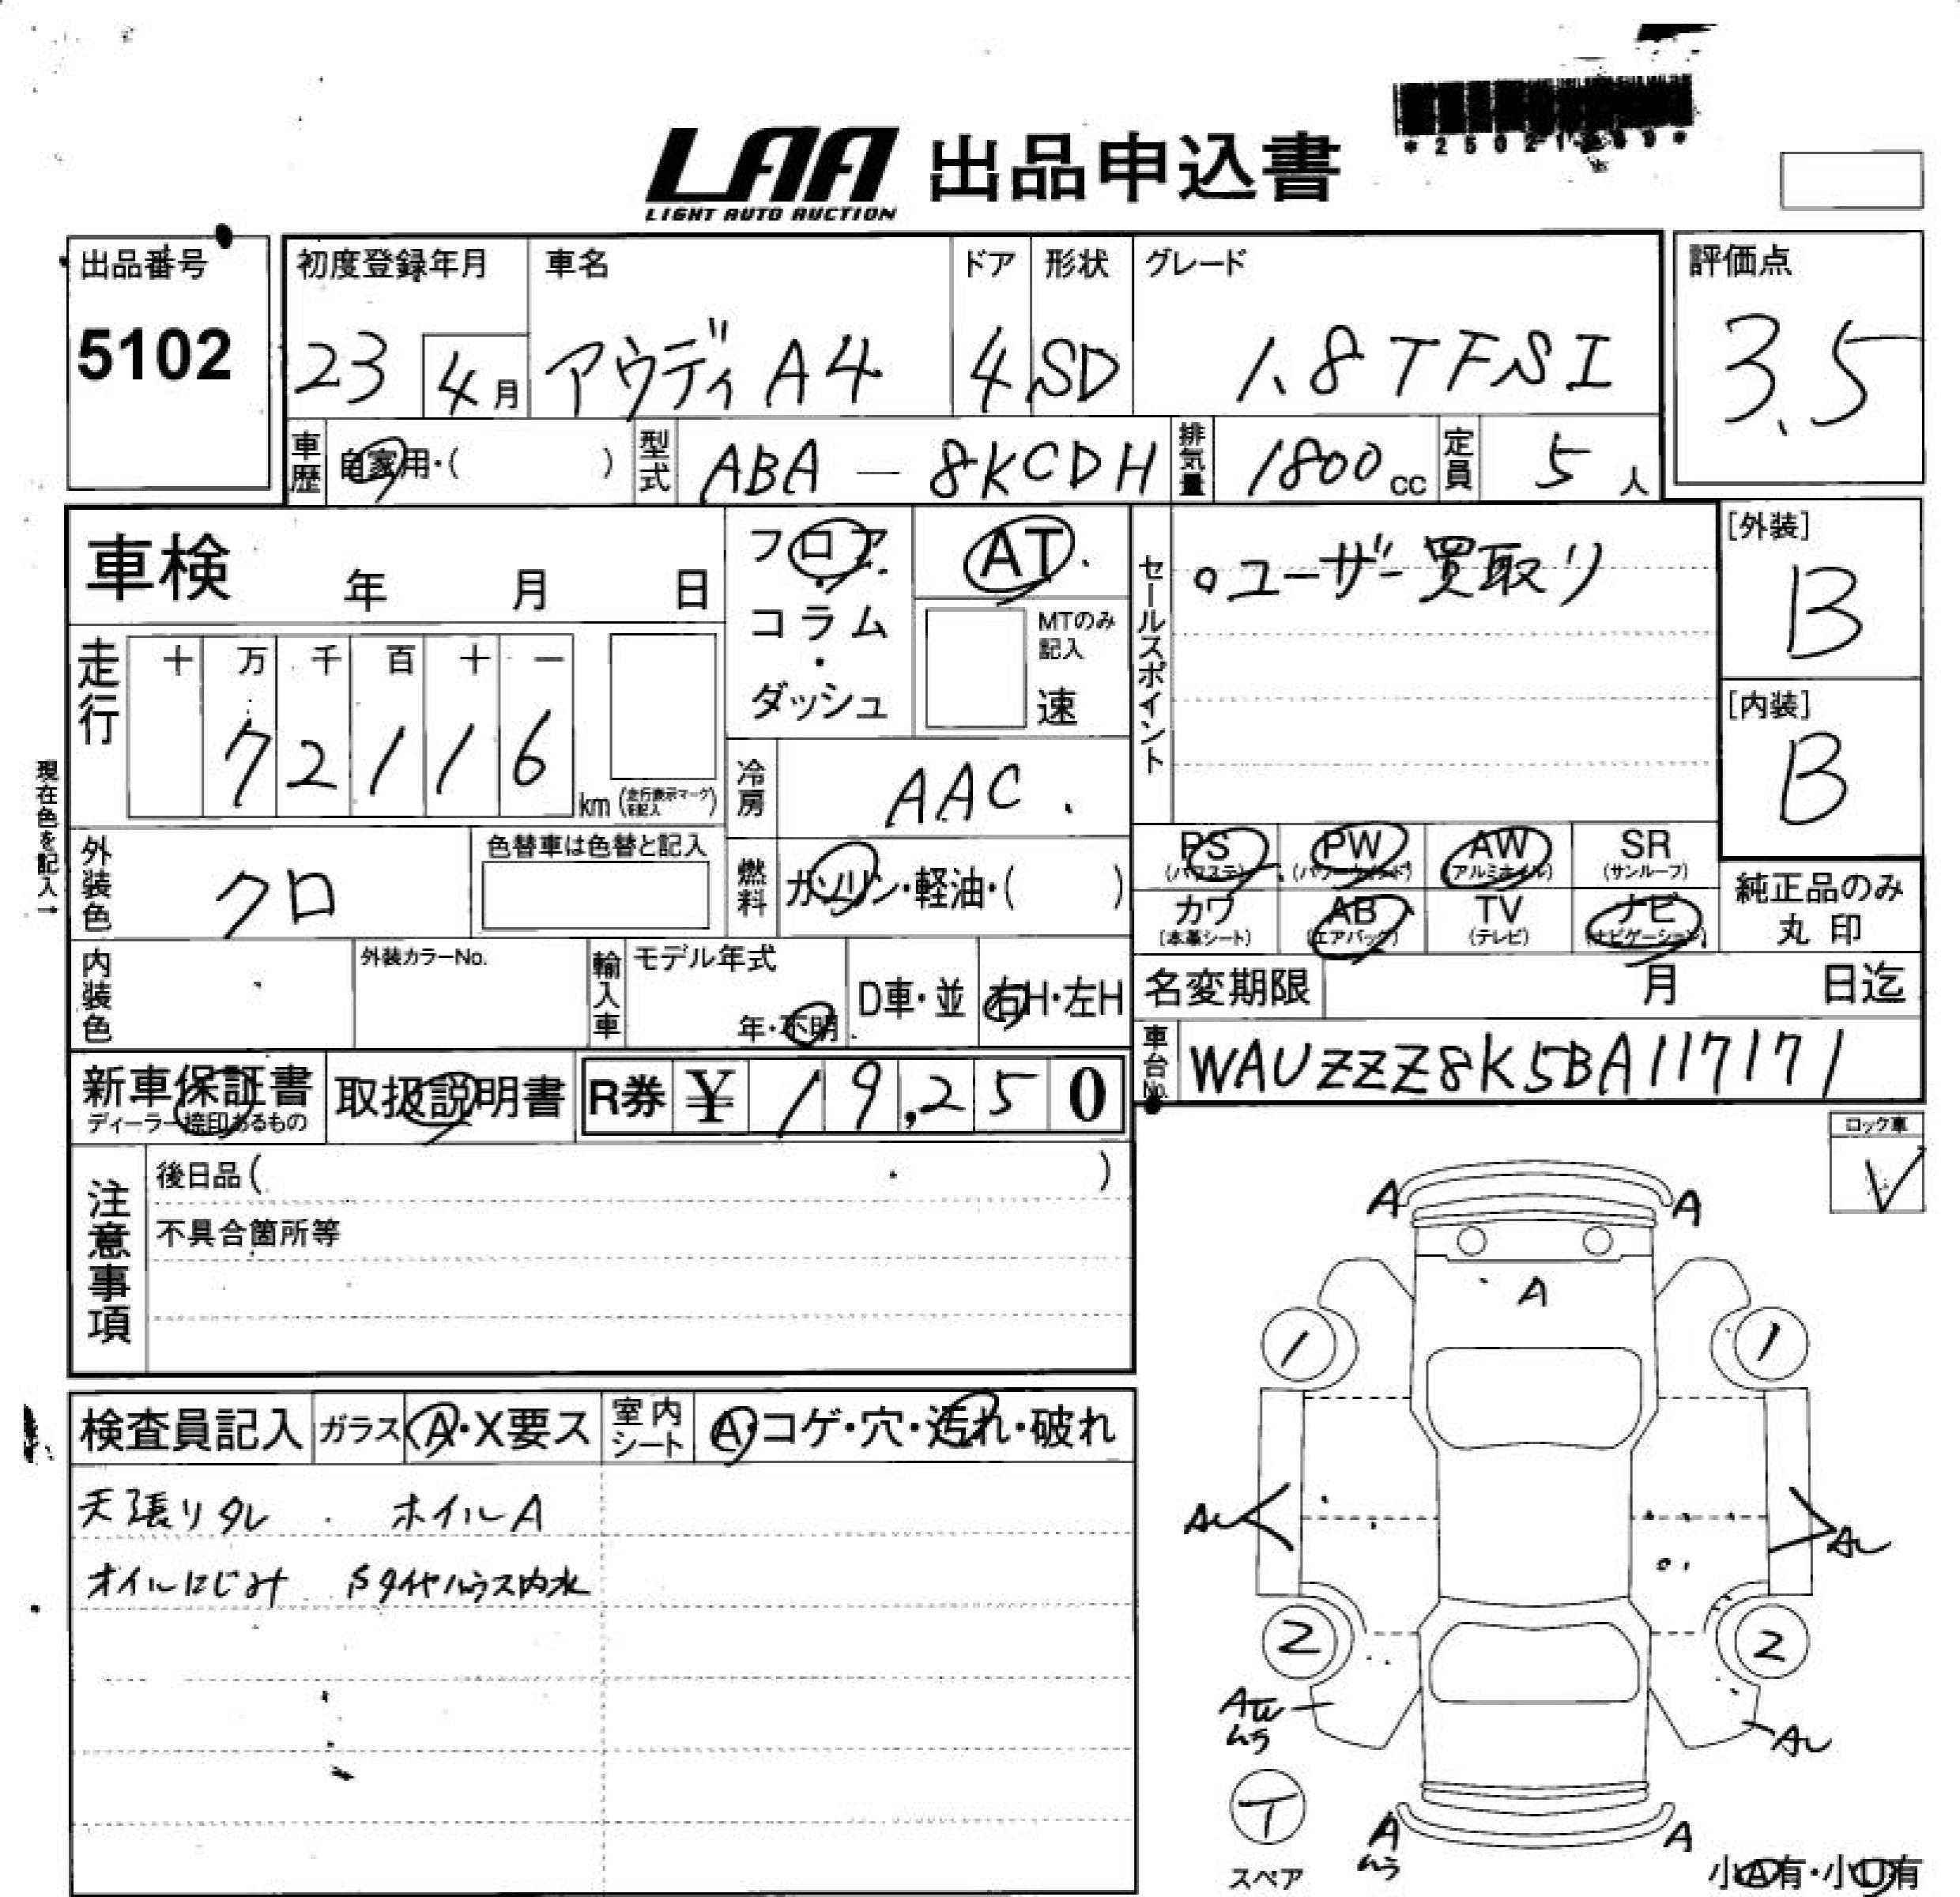 LAA 出品申込書
LIGHT AUTO AUCTION
出品番号
5102
初度登録年月 車名 ドア 形状 グレード
23 4月 アウディ A4 4 SD 1.8 TFSI
評価点
3.5
車歴 自家用・( ) 型式 ABA - 8KCDH 排気量 1800cc 定員 5人
車検 年 月 日
フロア・コラム・ダッシュ
AT
MTのみ記入
速
セールスポイント
○ユーザー買取り
[外装]
B
[内装]
B
走行
十 万 千 百 十 一
7 2 1 1 6
km (走行表示マークを記入)
現在色を記入→
冷房 AAC.
外装色 クロ
色替車は色替と記入
燃料 ガソリン・軽油・( )
PS (パワステ) PW (パワーウィンド) AW (アルミホイル) SR (サンルーフ)
カワ (本革シート) AB (エアバック) TV (テレビ) ナビ (ナビゲーション)
純正品のみ丸印
内装色
外装カラーNo.
輸入車 モデル年式 年・不明 D車・並 右H・左H
名変期限 月 日迄
車台No. WAUZZZ8K5BA117171
新車保証書
ディーラー捺印あるもの
取扱説明書
R券 ¥ 19,250
ロック車
V
注意事項
後日品( )
不具合箇所等
検査員記入 ガラス A・X要ス 室内シート A・コゲ・穴・汚れ・破れ
天張りタレ ホイルA
オイルにじみ タイヤハウス内水
A A
A
1 1
AU AU
2 2
AW
ムラ
AU
T
スペア
A A
ムラ
小A有・小U有